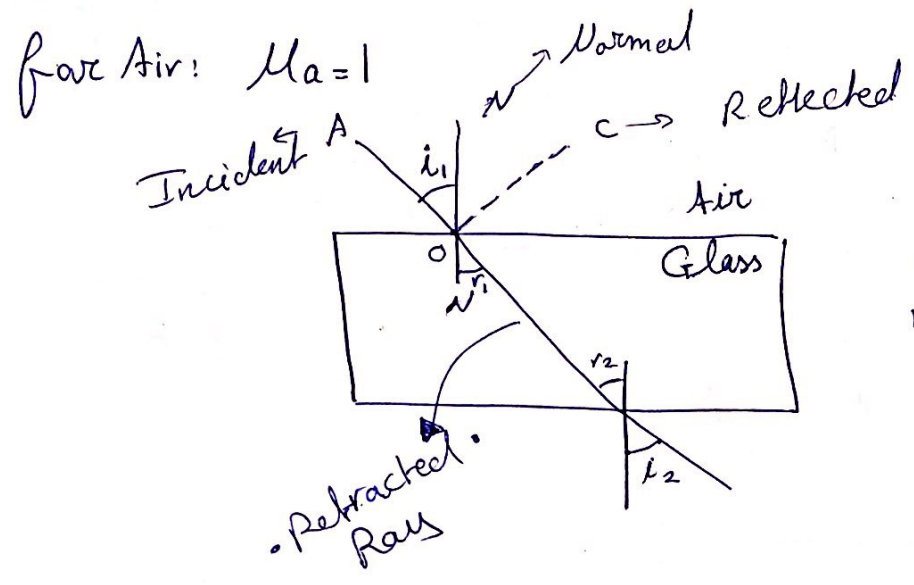 for Air: μa = 1
N → Normal
Incident ← A
i1
C → Reflected
Air
O
Glass
N r1
r2
i2
. Refracted .
Ray